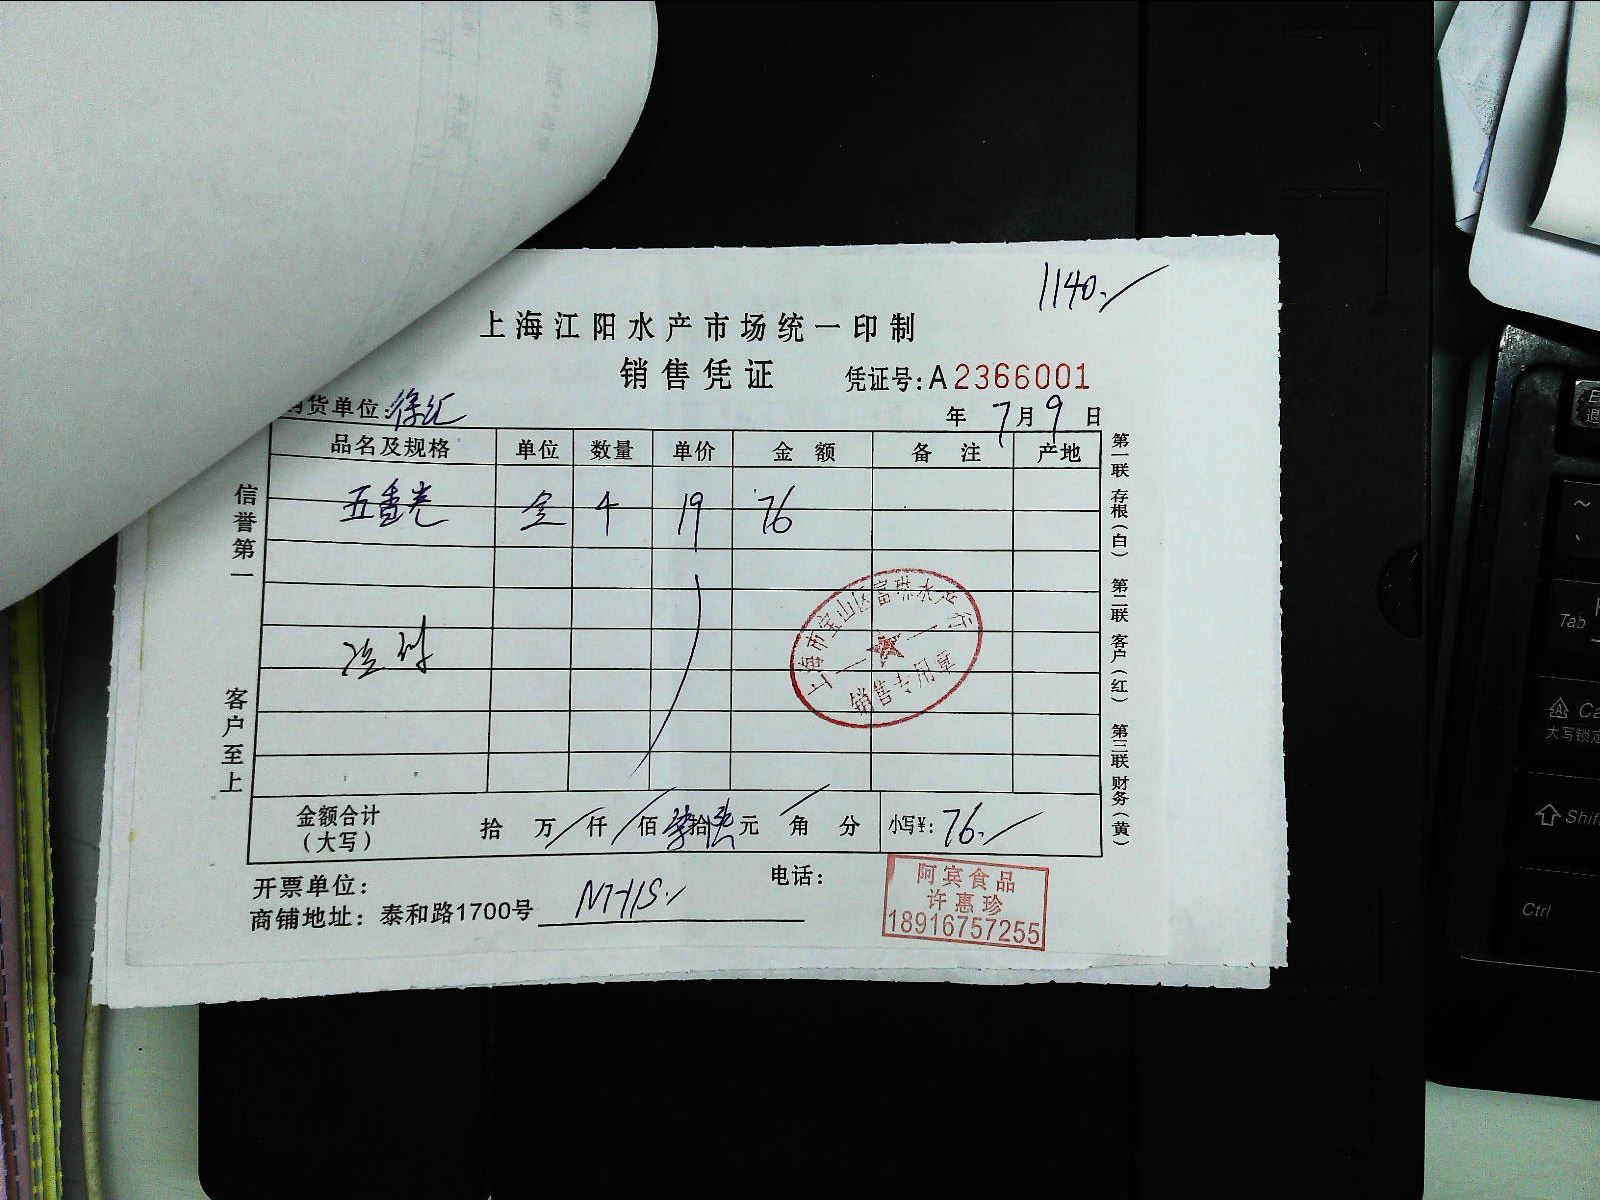 1140.
上海江阳水产市场统一印制
销售凭证
凭证号:A2366001
货单位:徐汇
年7月9日
品名及规格 单位 数量 单价 金额 备注 产地
4 19 76
信誉第一
客户至上
第一联 存根(白) 第二联 客户(红) 第三联 财务(黄)
上海市宝山区富琳水产行
销售专用章
金额合计
(大写)
拾 万 仟 佰 柒拾陆元 角 分
小写¥: 76.
开票单位:
电话:
商铺地址:泰和路1700号
阿宾食品
许惠珍
18916757255
Tab
大写锁定
Shif
Ctrl